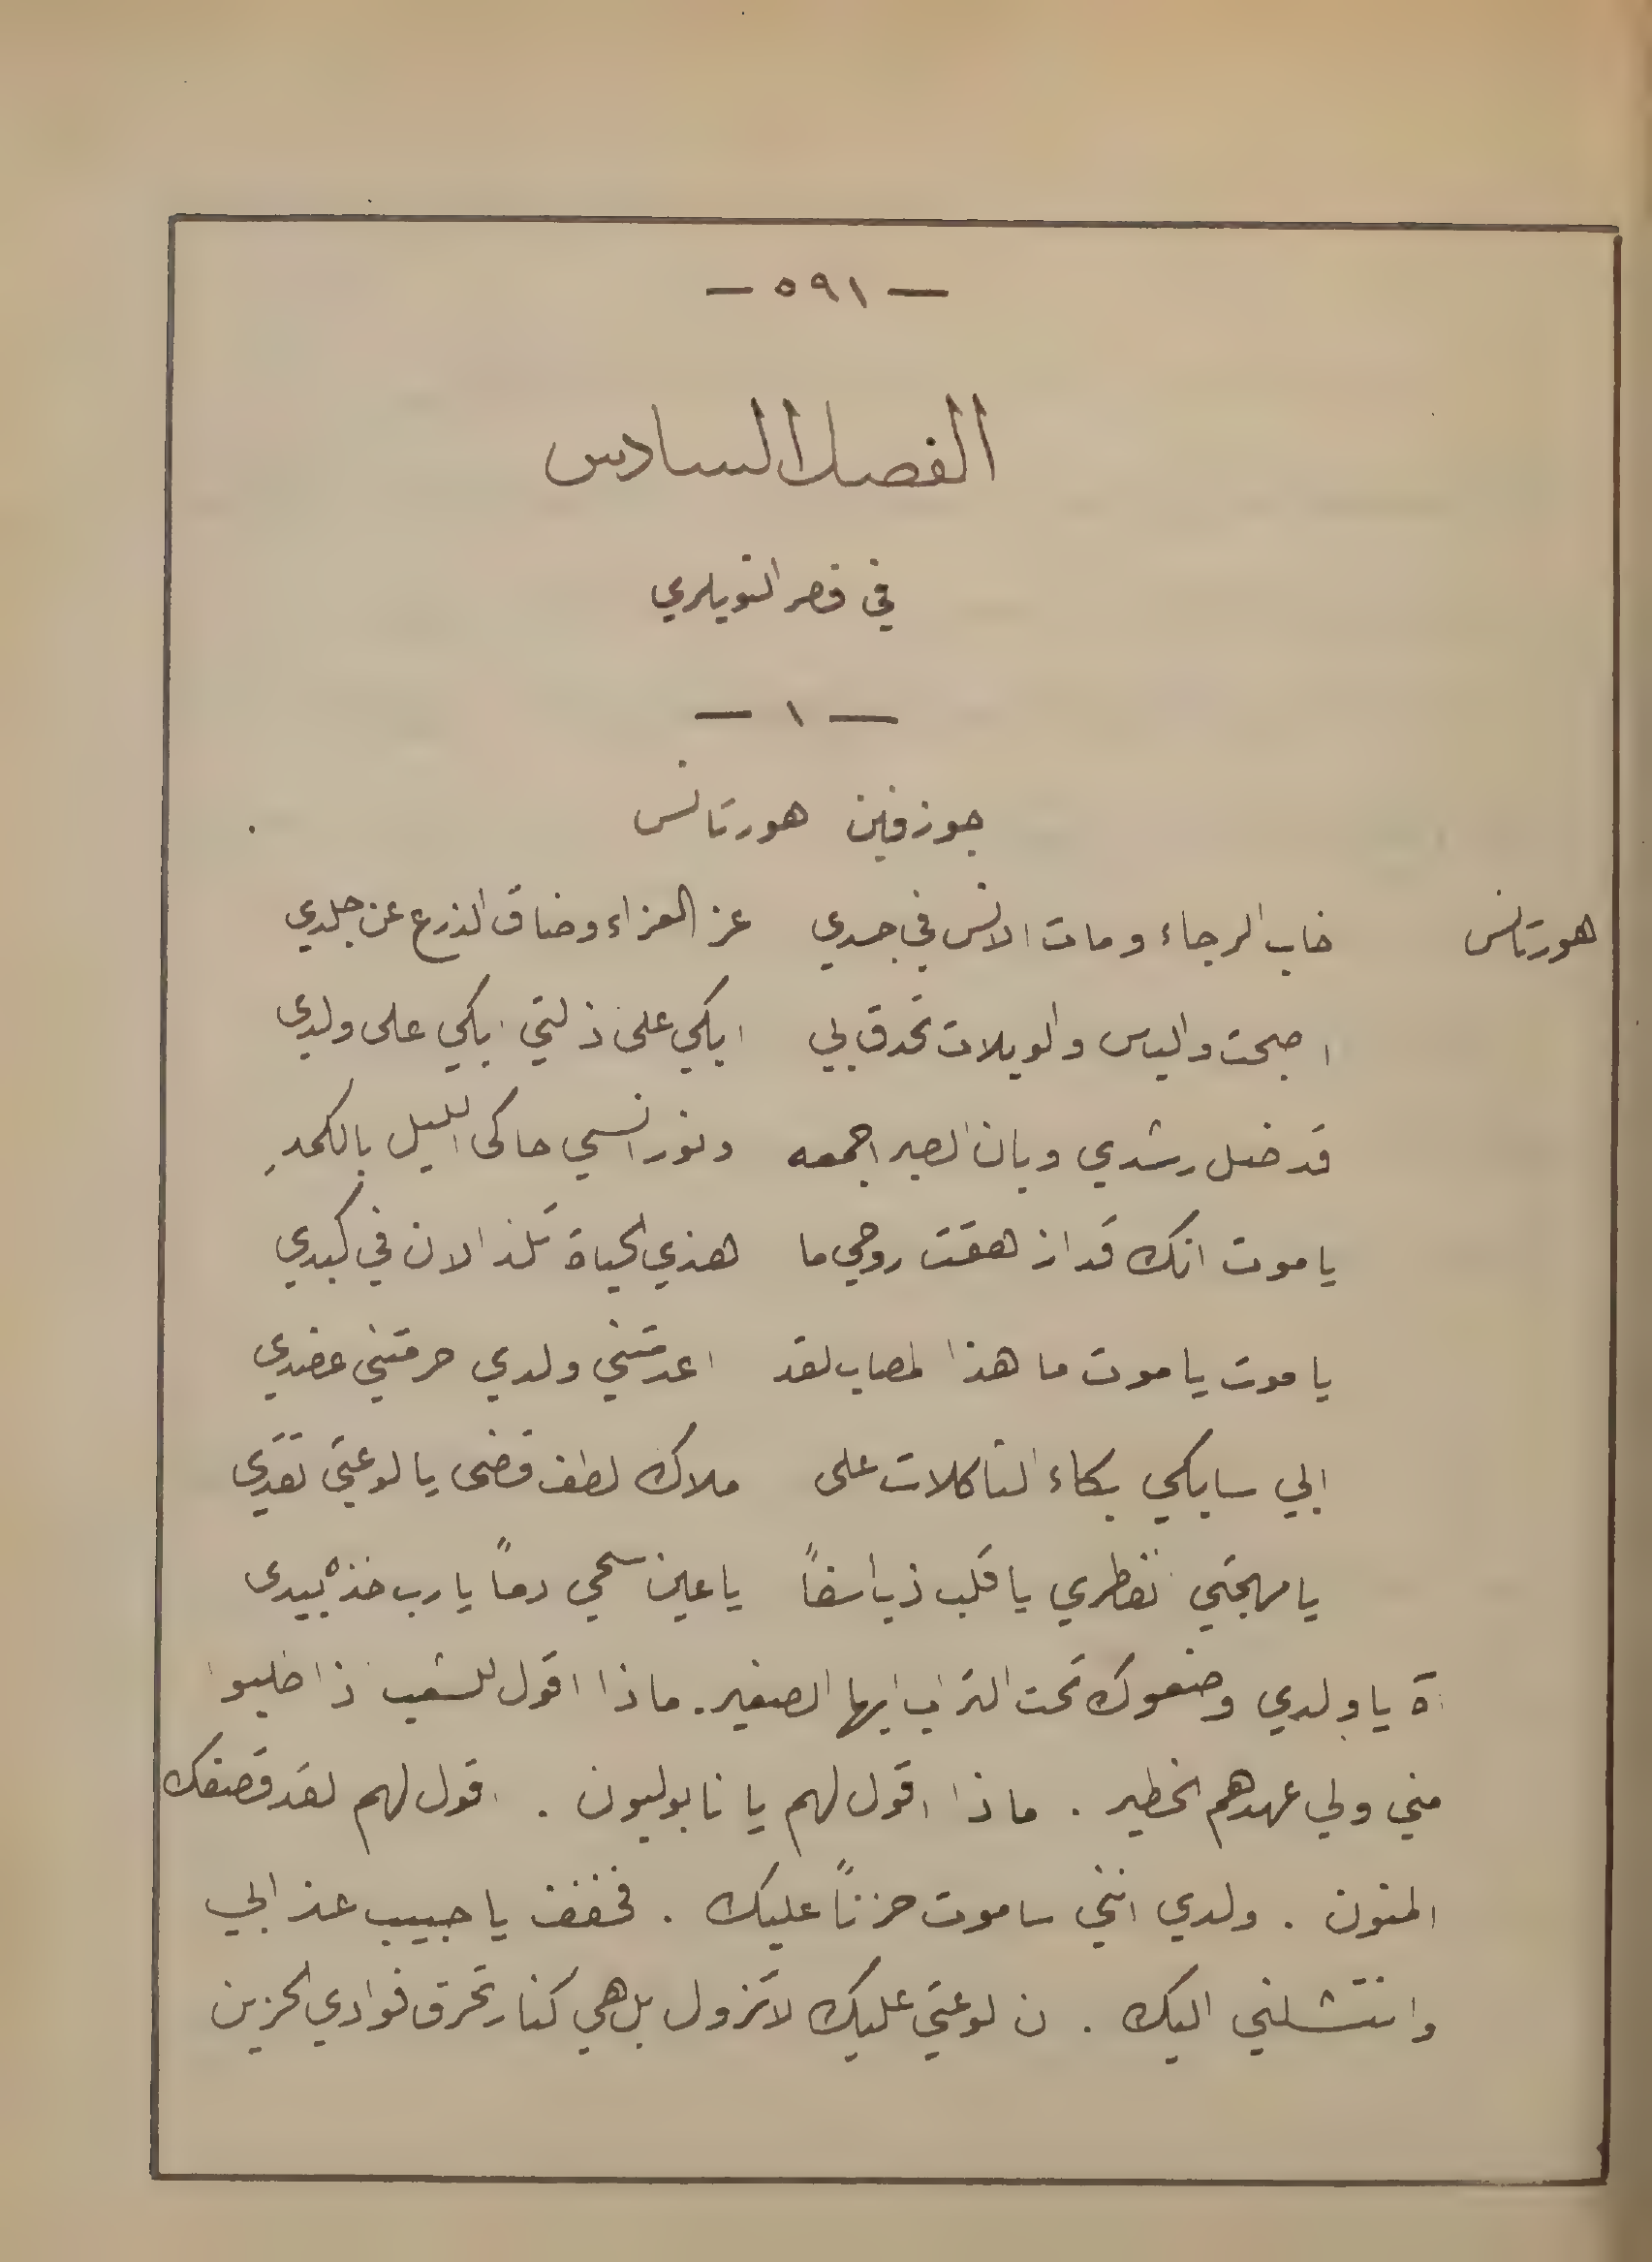 — ٥٩١ —
الفصل السادس
في قصر التويلري
— ١ —
جوزفين هورتانس
هورتانس خاب الرجاء ومات الانس في جسدي عز العزاء وضاق الذرع عن جلدي
اصبحت والياس والويلات تحدق بي ابكي على ذلتي ابكي على ولدي
قد ضل رشدي وبان الصبر اجمعه ونور انسي حاكى الليل بالكمدِ
يا موت انك قد ازهقت روحي ما هذي الحياة تلذ الان في كبدي
يا موت يا موت ما هذا المصاب لقد اعدمتني ولدي حرمتني عضدي
ابي سابكي بكاء الثاكلات على ملاك لطف قضى يا لوعتي تقدي
يا مهجتي تفطري يا قلب ذب اسفاً يا عين سحي دماً يا رب خذه بيدي
آه يا ولدي وضعوك تحت التراب ايها الصغير. ماذا اقول للشعب اذا طلبوا
مني ولي عهدهم الخطير . ماذا اقول لهم يا نابوليون . اقول لهم لقد قصفك
المنون . ولدي انني ساموت حزناً عليك . فخفف يا حبيب عذابي
وانتشلني اليك . ان لوعتي عليك لا تزول بل هي كنار تحرق فوادي الحزين